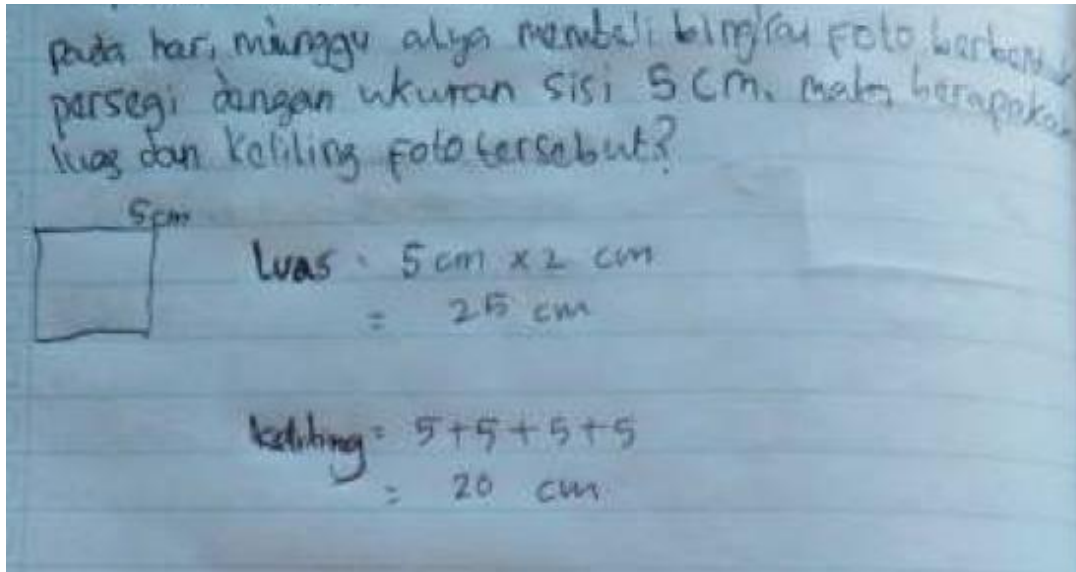 pada hari minggu alya membeli bingkai foto berbentuk
persegi dengan ukuran sisi 5 cm. maka berapakan
luas dan keliling foto tersebut?
5cm
Luas : 5 cm x 2 cm
= 25 cm
keliling = 5+5+5+5
= 20 cm